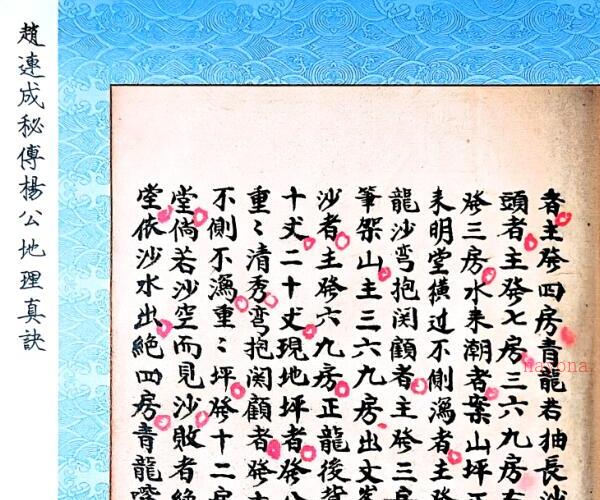 趙連成秘傳楊公地理真訣
者主發四房青龍若抽長沙
頭者主發七房三六九房
發三房水来潮者案山坪正
来明堂横过不側漏者主發
龍沙弯抱関顧者主發三房
筆架山主三六九房出文
沙者主發六九房正龍後
十丈二十丈現地坪者發
重〻清秀弯抱関顧者發十
不側不漏重〻坪發十二房
堂倘若沙空而見沙敗者絕
堂依沙水出絕四房青龍